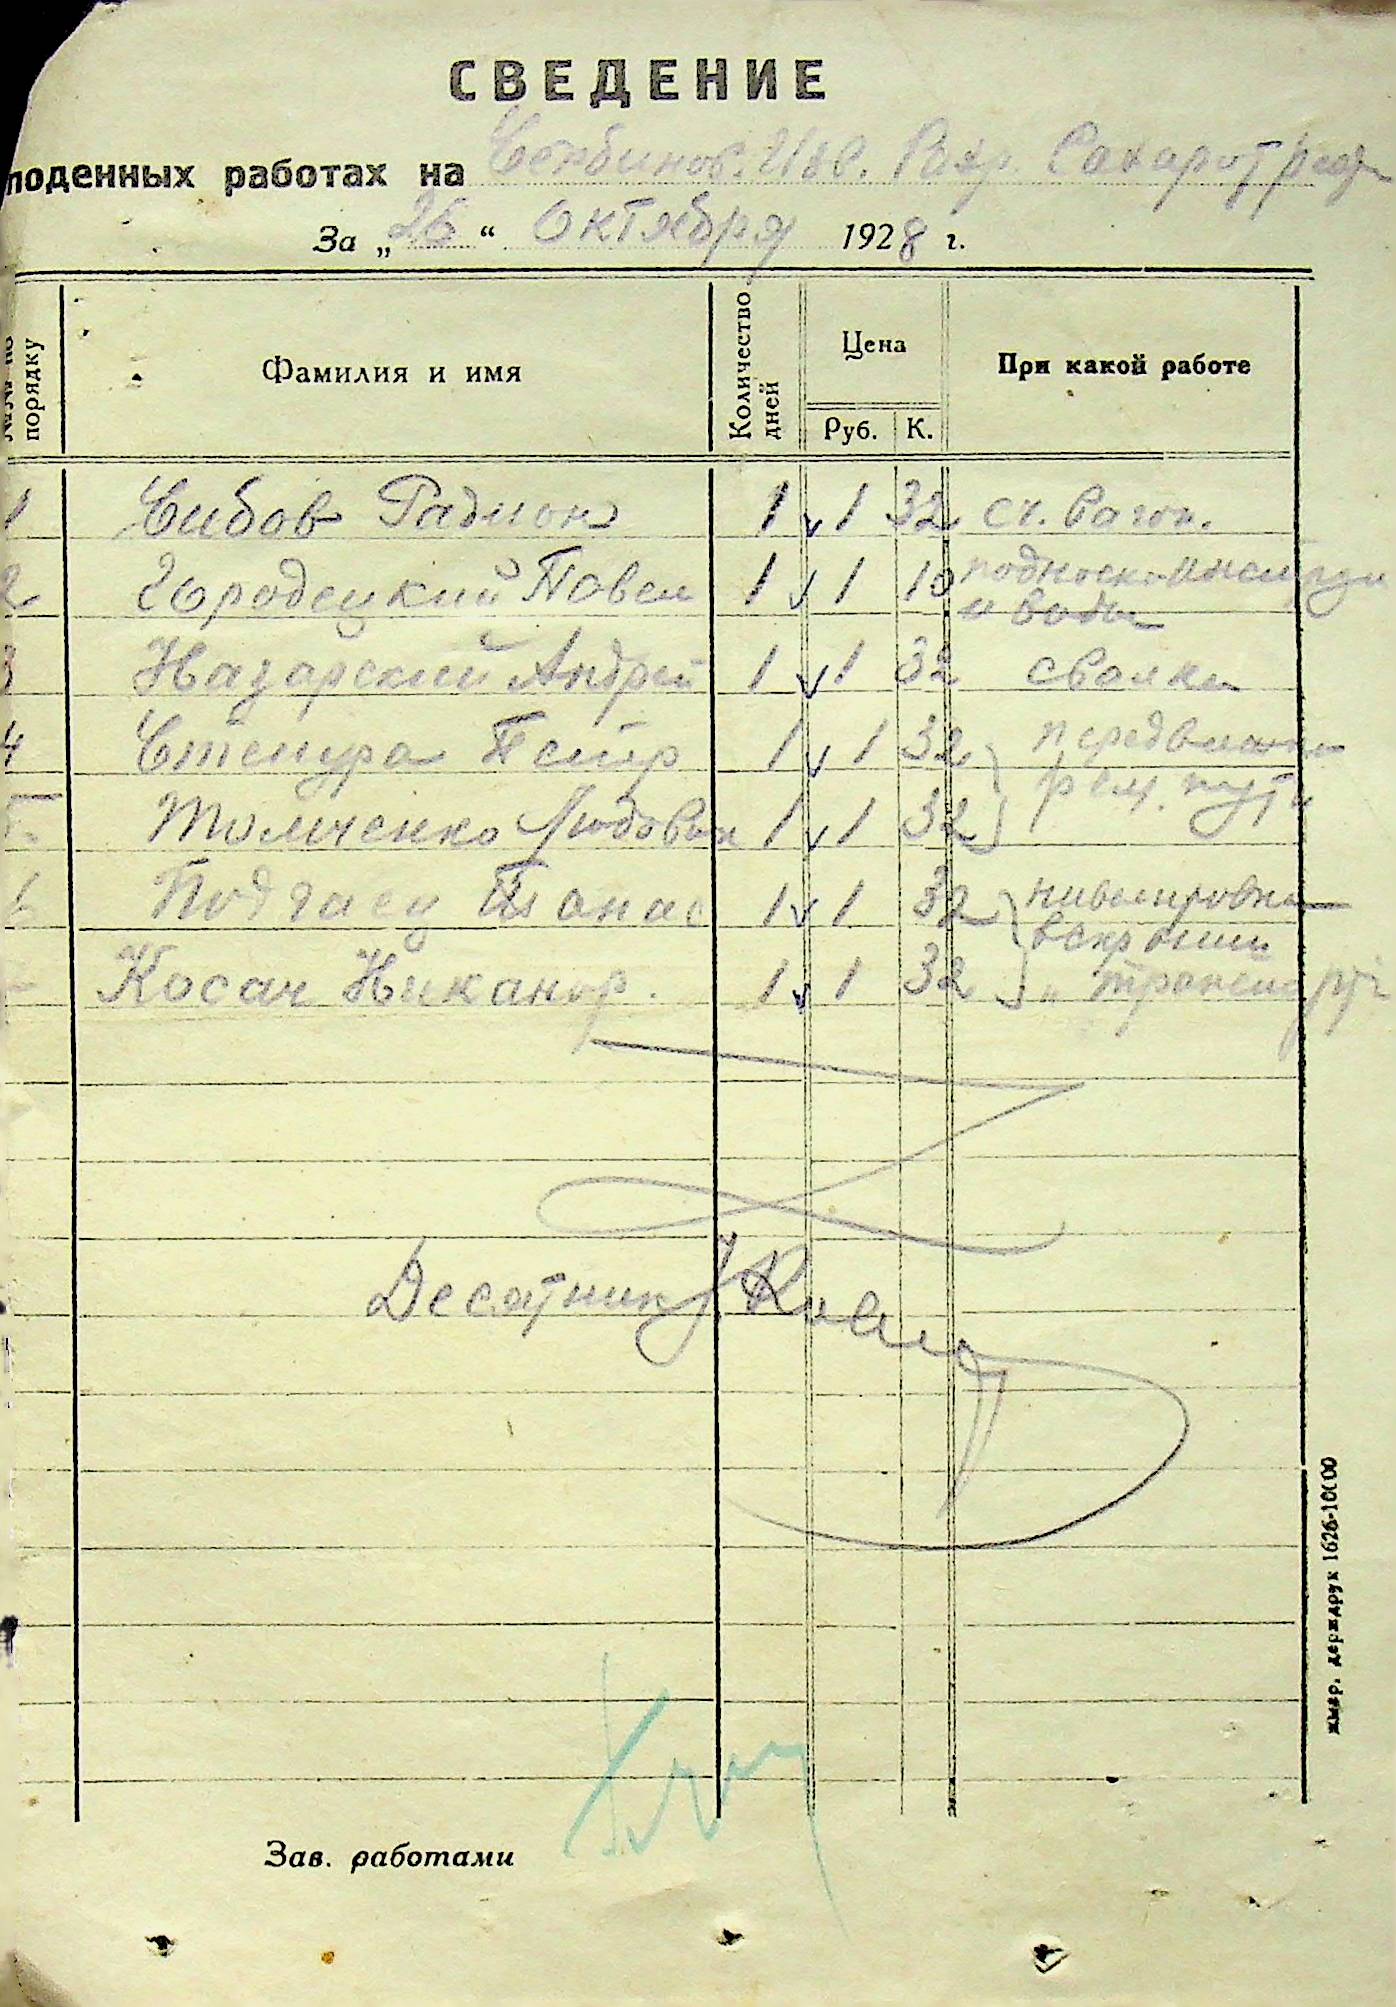 СВЕДЕНИЕ
поденных работах на Сербинов. Изв. Разр. Сахаротреста
За „26“ октября 1928 г.
№№ по порядку
Фамилия и имя
Количество дней
Цена
Руб. К.
При какой работе
1 Сибов Радион 1 1 32 сч. вагон.
2 Городецкий Павел 1 1 10 подноска
и воды
3 Назарский Андрей 1 1 32 свалка
4 Стенура Петр 1 1 32 передвижка
рем. пути
5. Томченко Людовик 1 1 32
6 Подгаец Панас 1 1 32 нивелировка
вскрыши
Косач Никанор. 1 1 32 „
Десятник
Зав. работами
держдрук 1626-10000